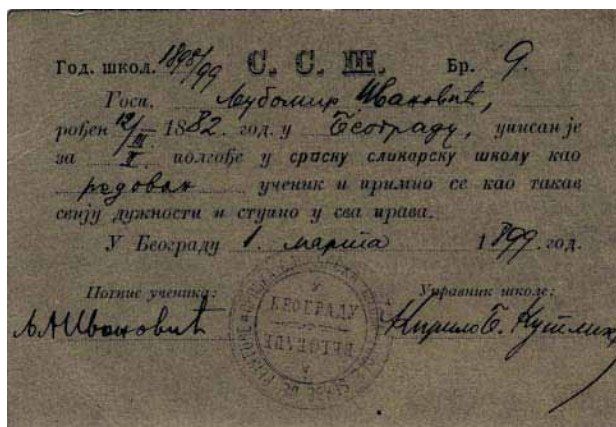 Год. школ. 1898/99 С. С. Ш. Бр. 9.
Госп. Љубомир Ивановић,
рођен 12/III 1882. год. у Београду, уписан је
за II полгође у српску сликарску школу као
редован ученик и примио се као такав
свију дужности и ступио у сва права.
У Београду 1. марта 1899. год.
Потпис ученика: Управник школе:
Љ. А. Ивановић Кирило Б. Кутлик
У
БЕОГРАДУ
BELGRADE
À